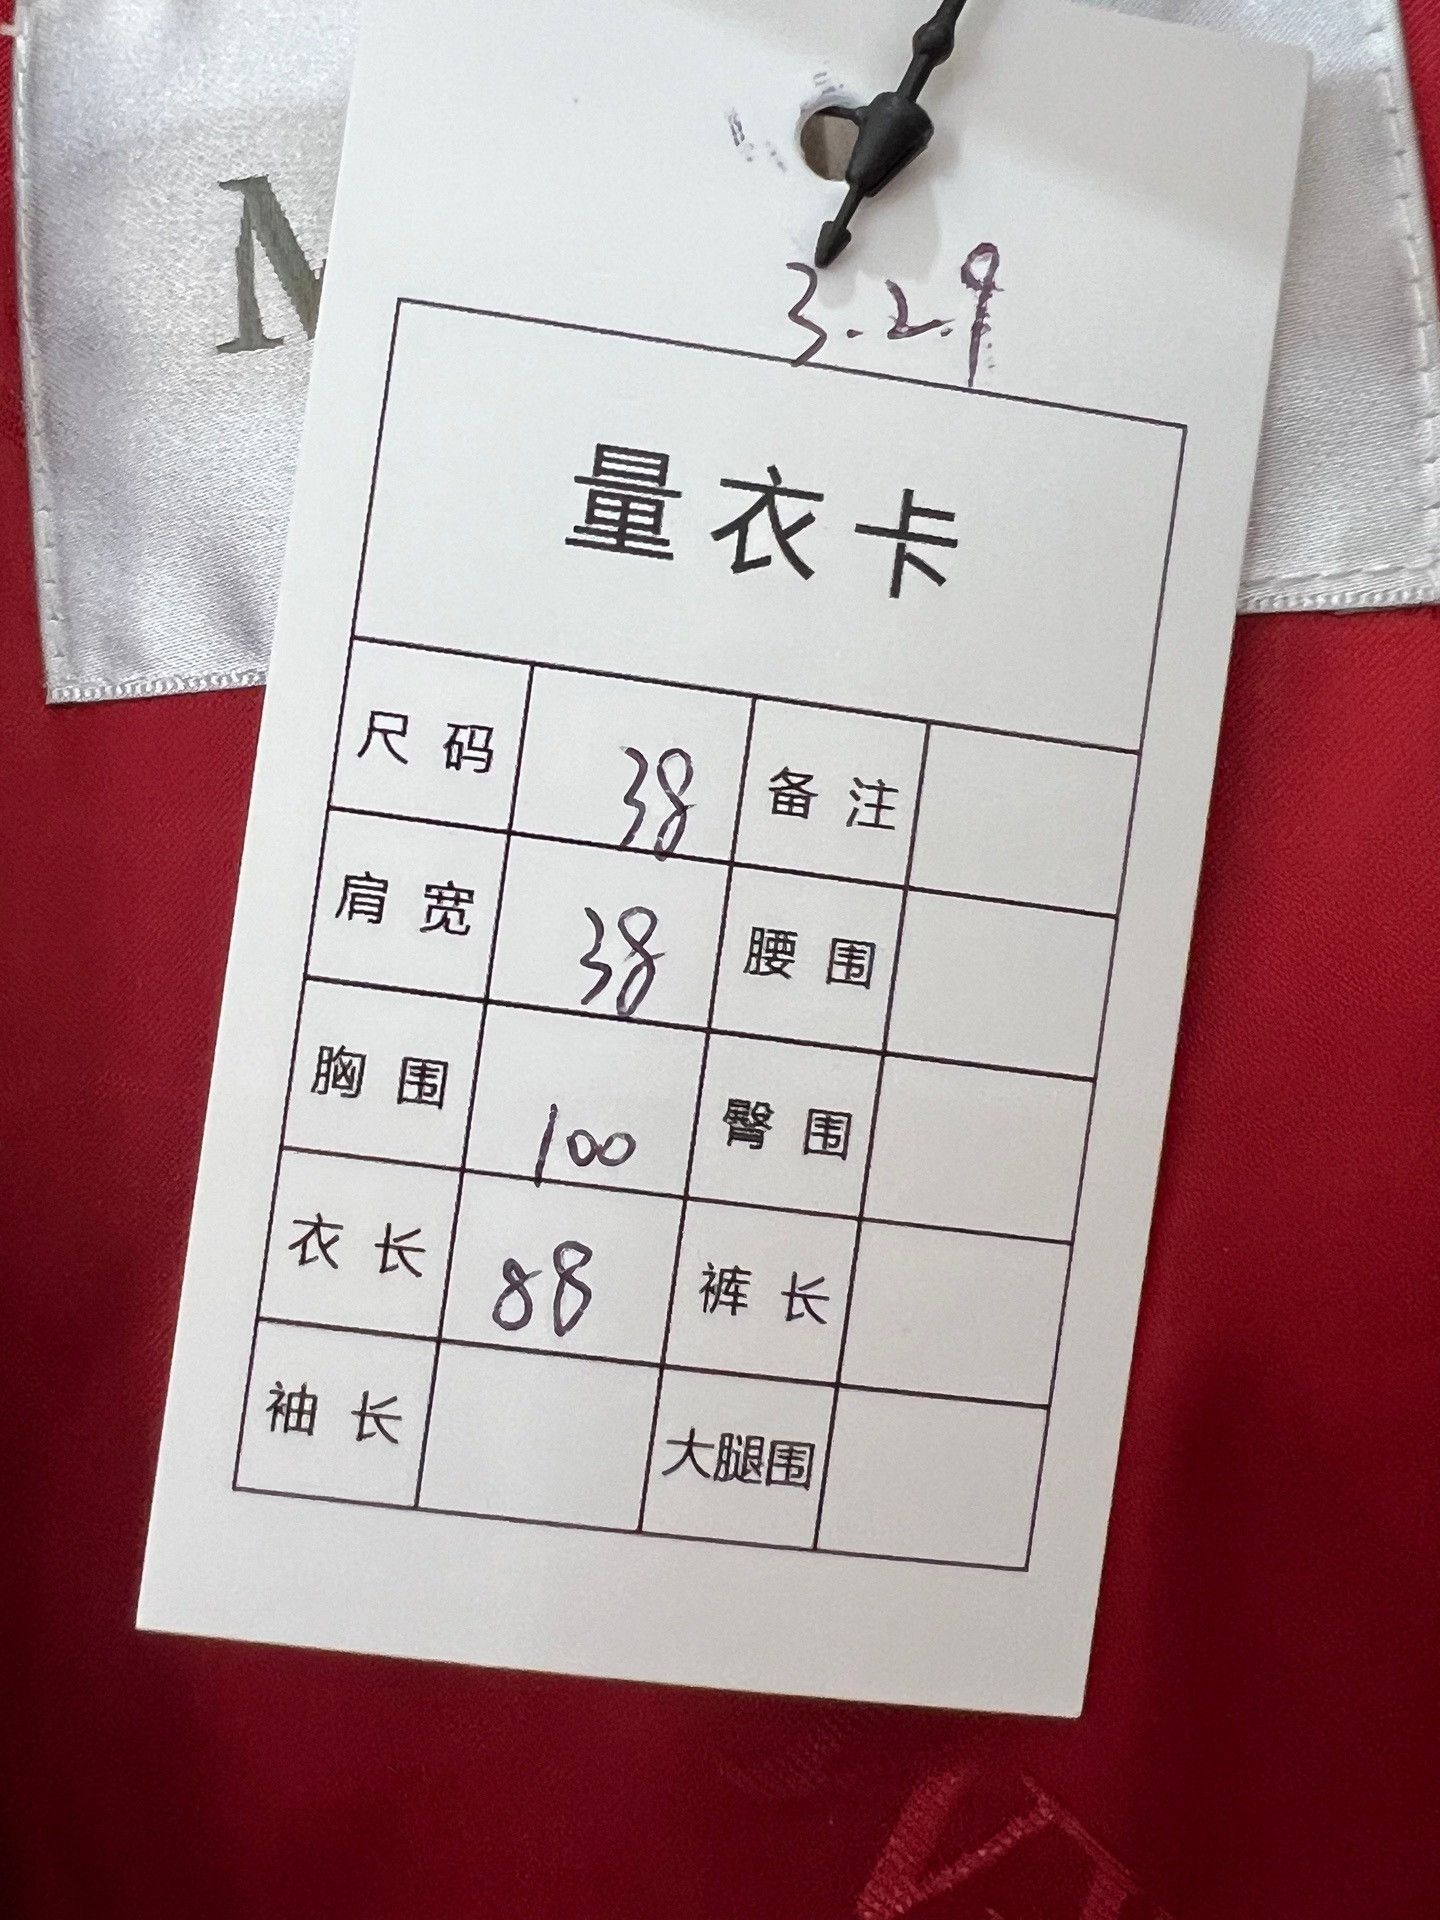 M
3.29
量衣卡
尺码 38 备注
肩宽 38 腰围
胸围 100 臀围
衣长 88 裤长
袖长 大腿围